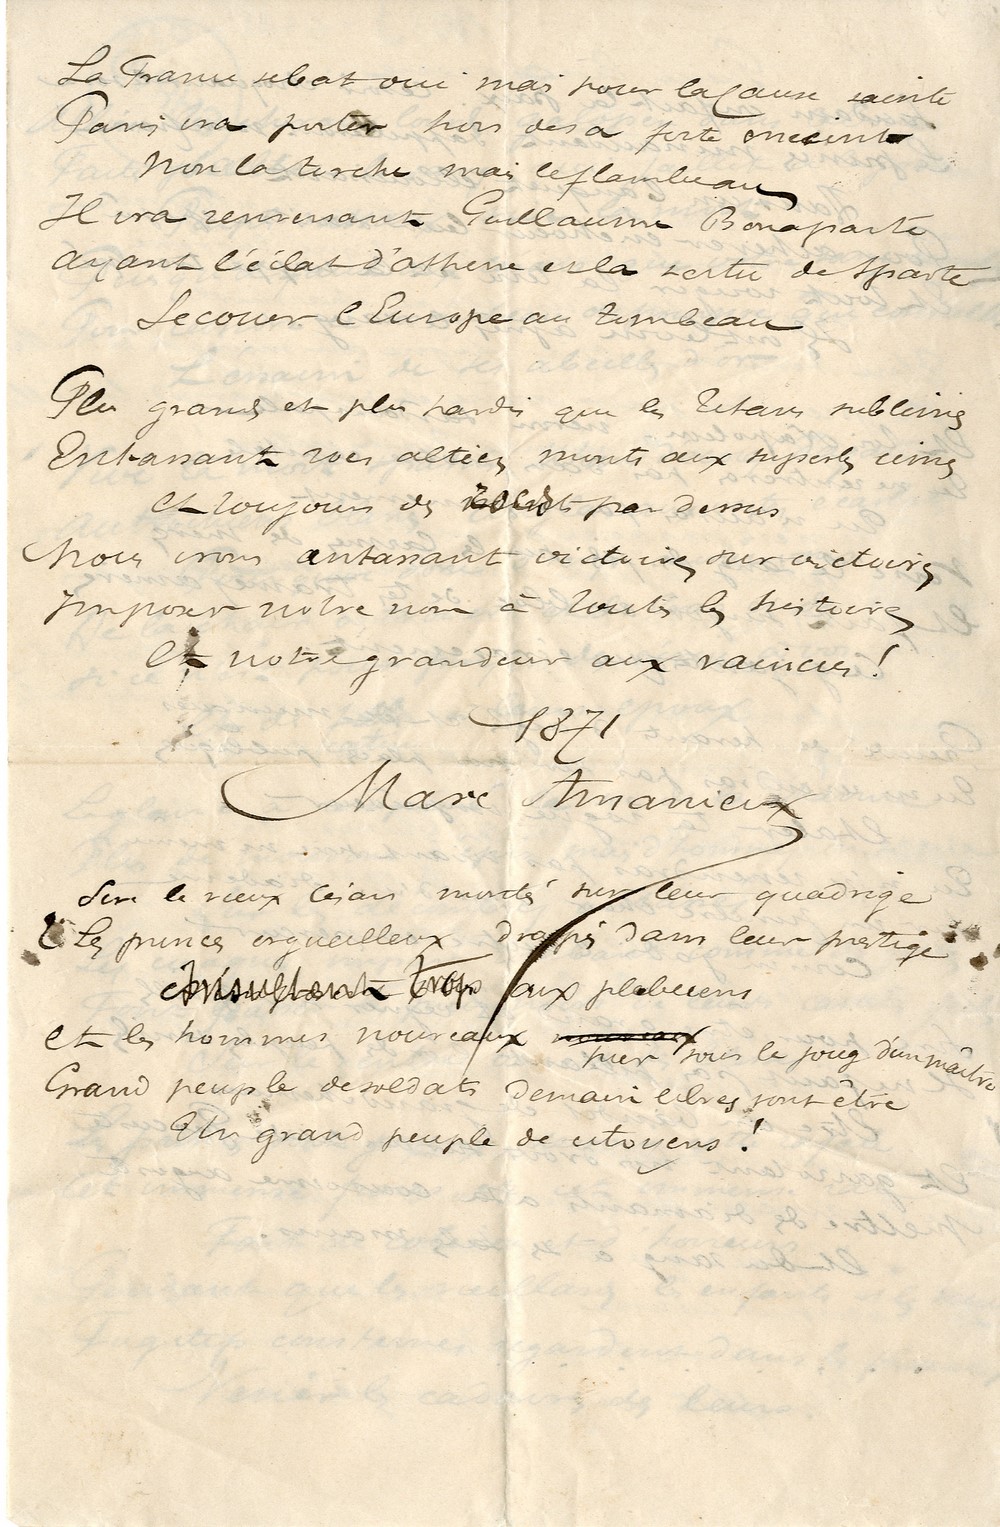 La France se bat oui mais pour la Cause sainte
Paris ira porter hors de sa forte enceinte
Non la torche mais le flambeau
Il ira renversant Guillaume Bonaparte
Ayant l'éclat d'athene et la vertu de Sparte
Secouer l'Europe au tombeau
Plus grands et plus hardis que les Titans sublimes
Entassant rocs altiers, monts aux superbes cimes
Et toujours des par dessus
Nous irons entassant victoires sur victoires
Imposer notre nom à toutes les histoires
Et notre grandeur aux vaincus !
1871
Marc Amanieux
Sur le vieux César monté sur leur quadrige
Les princes orgueilleux drapés dans leur prestige
Insultant trop aux plebeiens
Et les hommes nouveaux nouveaux
hier sous le joug d'un maître
Grand peuple de soldats demain libres vont être
Un grand peuple de citoyens !